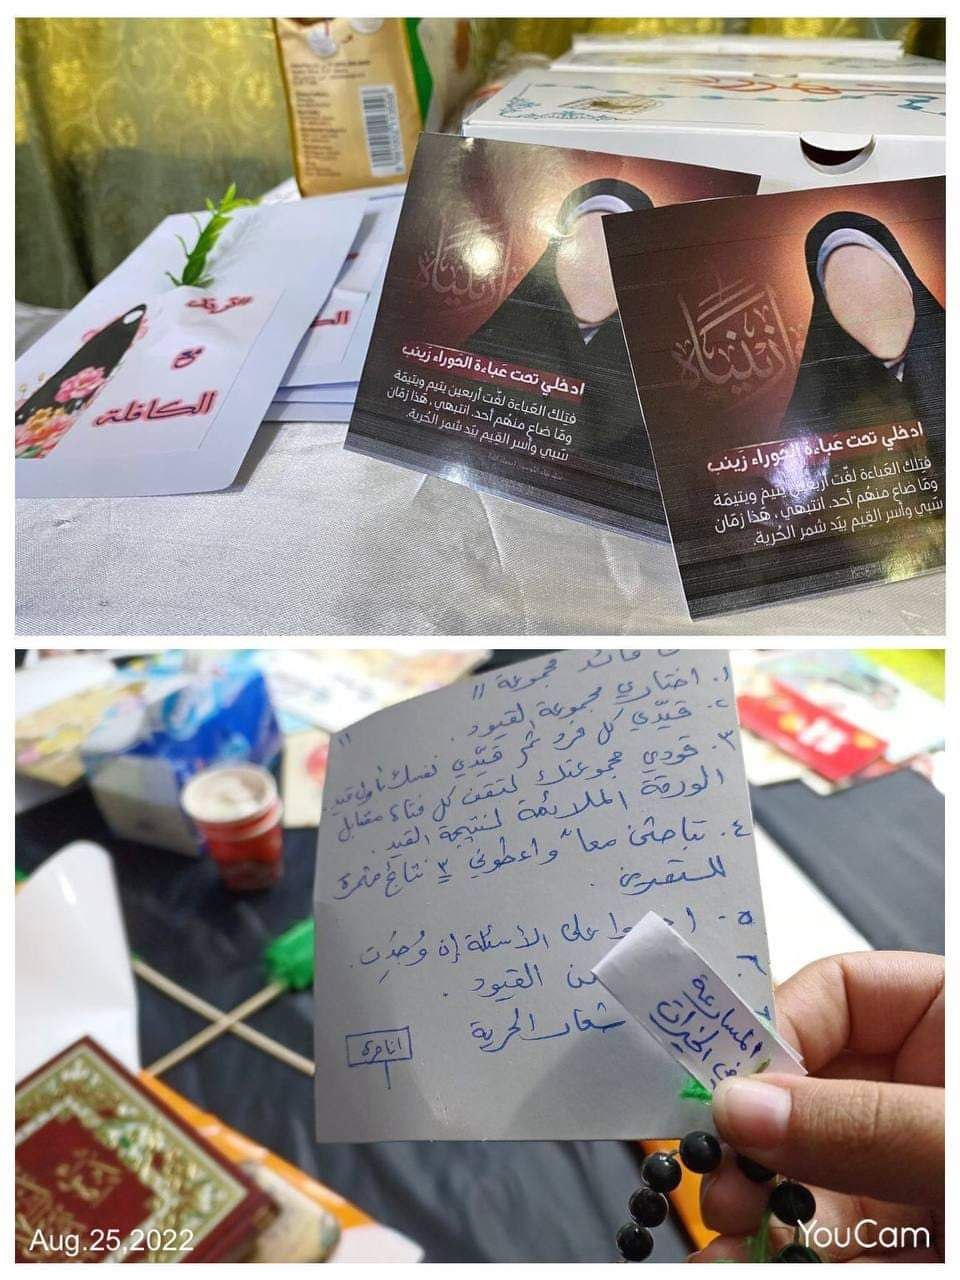 مع
الكافلة
ادخلي تحت عباءة الحَوراء زَينب
فتِلك العَباءة لفّت أربعين يتيم ويتيمَة
ومَا ضاع منهُم أحد. انتبهي ، هَذا زمَان
سَبي وأسر القيم بيَد شمر الحُرية.
ادخلي تحت عباءة الحَوراء زَينب
فتِلك العَباءة لفّت أربعين يتيم ويتيمَة
ومَا ضاع منهُم أحد. انتبهي ، هَذا زمَان
سَبي وأسر القيم بيَد شمر الحُرية.
قائد مجموعة "
١. اختاري مجموعة القيود .
٢. قيّدي كل فرد ثم قيّدي نفسك
٣. قودي مجموعتك لتقف كل فتاة مقابل
الورقة الملائمة لنتيجة القيد
٤. تباحثن معاً واعطوني ٣ نتائج مثمرة
٥- على الأسئلة إن وُجدت.
٦. من القيود .
شعار الحرية
انا حرة
المسارعة
الخيرات
Aug.25,2022
YouCam